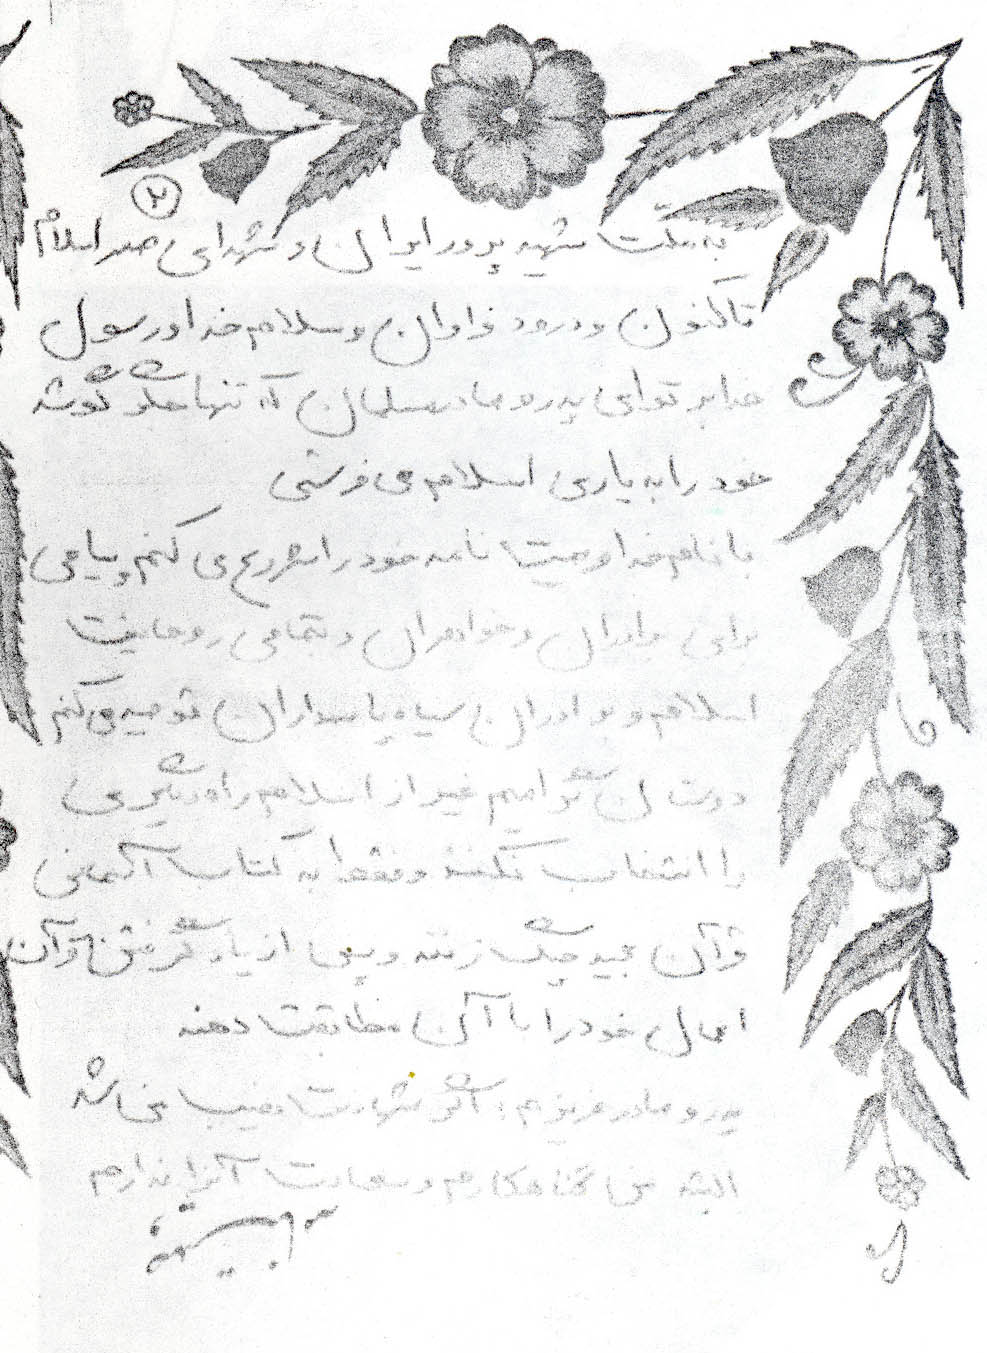 ۲
به ملت شهید پرور ایران و شهدای صدر اسلام
تاکنون و درود فراوان و سلام خدا و رسول
خدا بر تو ای پدر و مادر مسلمان که تنها جگر گوشه
خود را به یاری اسلام می فرستی
با نام خدا وصیت نامه خود را شروع می کنم و پیامی
برای برادران و خواهران و تمامی روحانیت
اسلام و برادران سپاه پاسداران توصیه می کنم
دوستان غیر از اسلام راه دیگری
را انتخاب نکنند و فقط به کتاب آسمانی
قرآن مجید چنگ زنند و پس از یاد گرفتن قرآن
اعمال خود را با آن مطابقت دهند
پدر و مادر عزیزم: اگر شهادت نصیب من باشد
البته من گناهکارم و سعادت آنرا ندارم